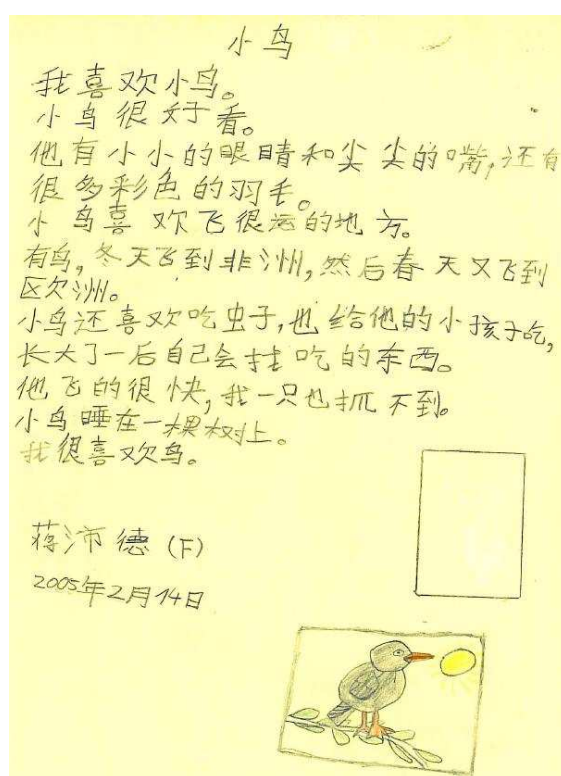 小鸟
我喜欢小鸟。
小鸟很好看。
他有小小的眼睛和尖尖的嘴,还有
很多彩色的羽毛。
小鸟喜欢飞很远的地方。
有鸟,冬天飞到非洲,然后春天又飞到
区欠洲。
小鸟还喜欢吃虫子,也给他的小孩子吃,
长大了一后自己会找吃的东西。
他飞的很快,我一只也抓不到。
小鸟睡在一棵树上。
我很喜欢鸟。
蒋沛德(F)
2005年2月14日